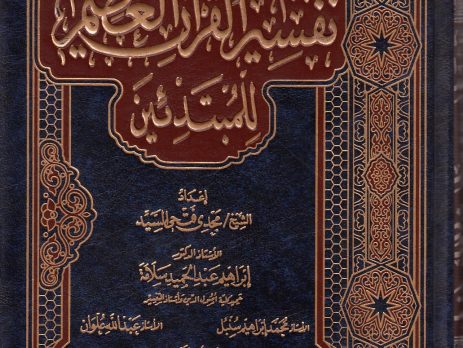 تفسير القرآن العظيم
للمبتدئين
إعداد
الشيخ/ مجدي فتحي السيد
الأستاذ الدكتور
إبراهيم عبد الحميد سلامة
الأستاذ محمد إبراهيم سنبل
الأستاذ عبد الله علوان